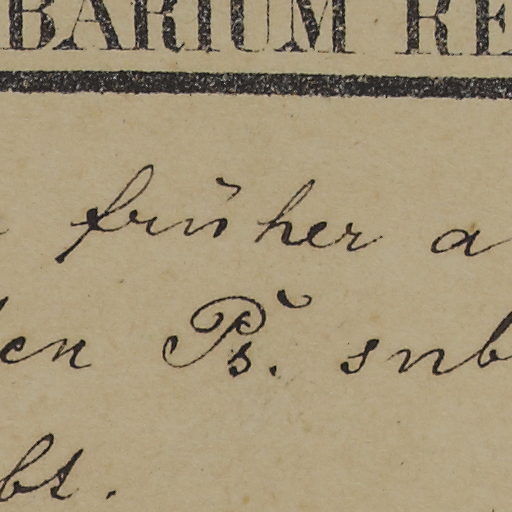 BARIUM RE
früher a
en Ps. sub
bt.